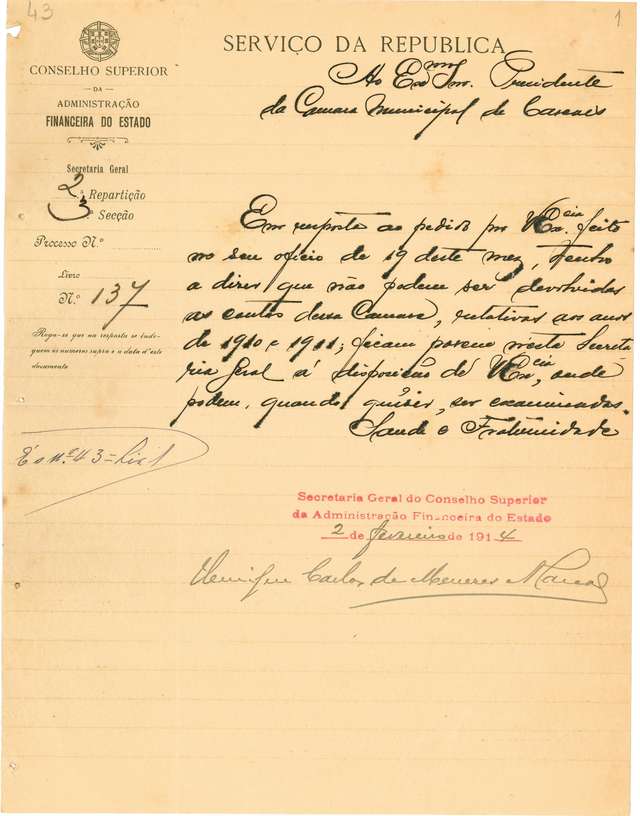 43
1
CONSELHO SUPERIOR
DA
ADMINISTRAÇÃO
FINANCEIRA DO ESTADO
Secretaria Geral
2.ª Repartição
3.ª Secção
Processo N.º
Livro
N.º 137
Roga-se que na resposta se indi-
quem os numeros supra e a data d'este
documento
SERVIÇO DA REPUBLICA
Ao Exmo Snr. Presidente
da Camara Municipal de Cascaes
Em resposta ao pedido por V. Excia. feito
no seu oficio de 19 deste mez, tenho
a dizer que não podem ser devolvidas
as contas dessa Camara, relativas aos anos
de 1910 e 1911; ficam porem nesta Secreta
ria Geral á disposição de V. Excia, onde
podem, quando quizer, ser examinadas.
Saude e Fraternidade
E s n.º 43
Secretaria Geral do Conselho Superior
da Administração Financeira do Estado
2 de fevereiro de 1914
Carlos de Menezes